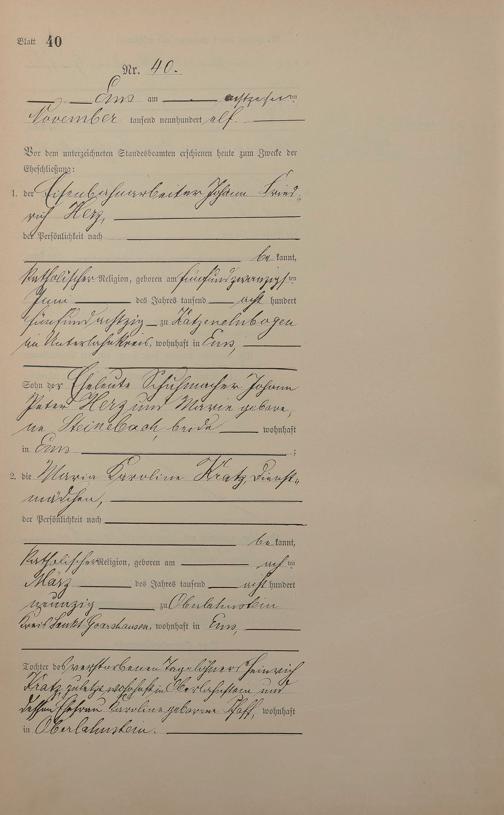 Blatt 40
Nr. 40.
Ems am achtzehnten
November tausend neunhundert elf
Vor dem unterzeichneten Standesbeamten erschienen heute zum Zwecke der
Eheschließung:
1. der Eisenbahnarbeiter Johann Fried-
rich Herz,
der Persönlichkeit nach
be kannt,
katholischer Religion, geboren am fünfundzwanzigsten
Juni des Jahres tausend acht hundert
fünfundachtzig zu Katzenelnbogen
im Unterlahnkreis, wohnhaft in Ems,
Sohn der Eheleute Schuhmacher Johann
Peter Herz und Marie gebore,
ne Steinebach, beide wohnhaft
in Ems ;
2. die Maria Karoline Kratz, Dienst-
mädchen,
der Persönlichkeit nach
be kannt,
katholischer Religion, geboren am ten
März des Jahres tausend acht hundert
neunzig zu Oberlahnstein
Kreis Sankt Goarshausen, wohnhaft in Ems,
Tochter des verstorbenen Tagelöhners Heinrich
Kratz, zuletzt wohnhaft in Oberlahnstein und
dessen Ehefrau Karoline geborene wohnhaft
in Oberlahnstein.